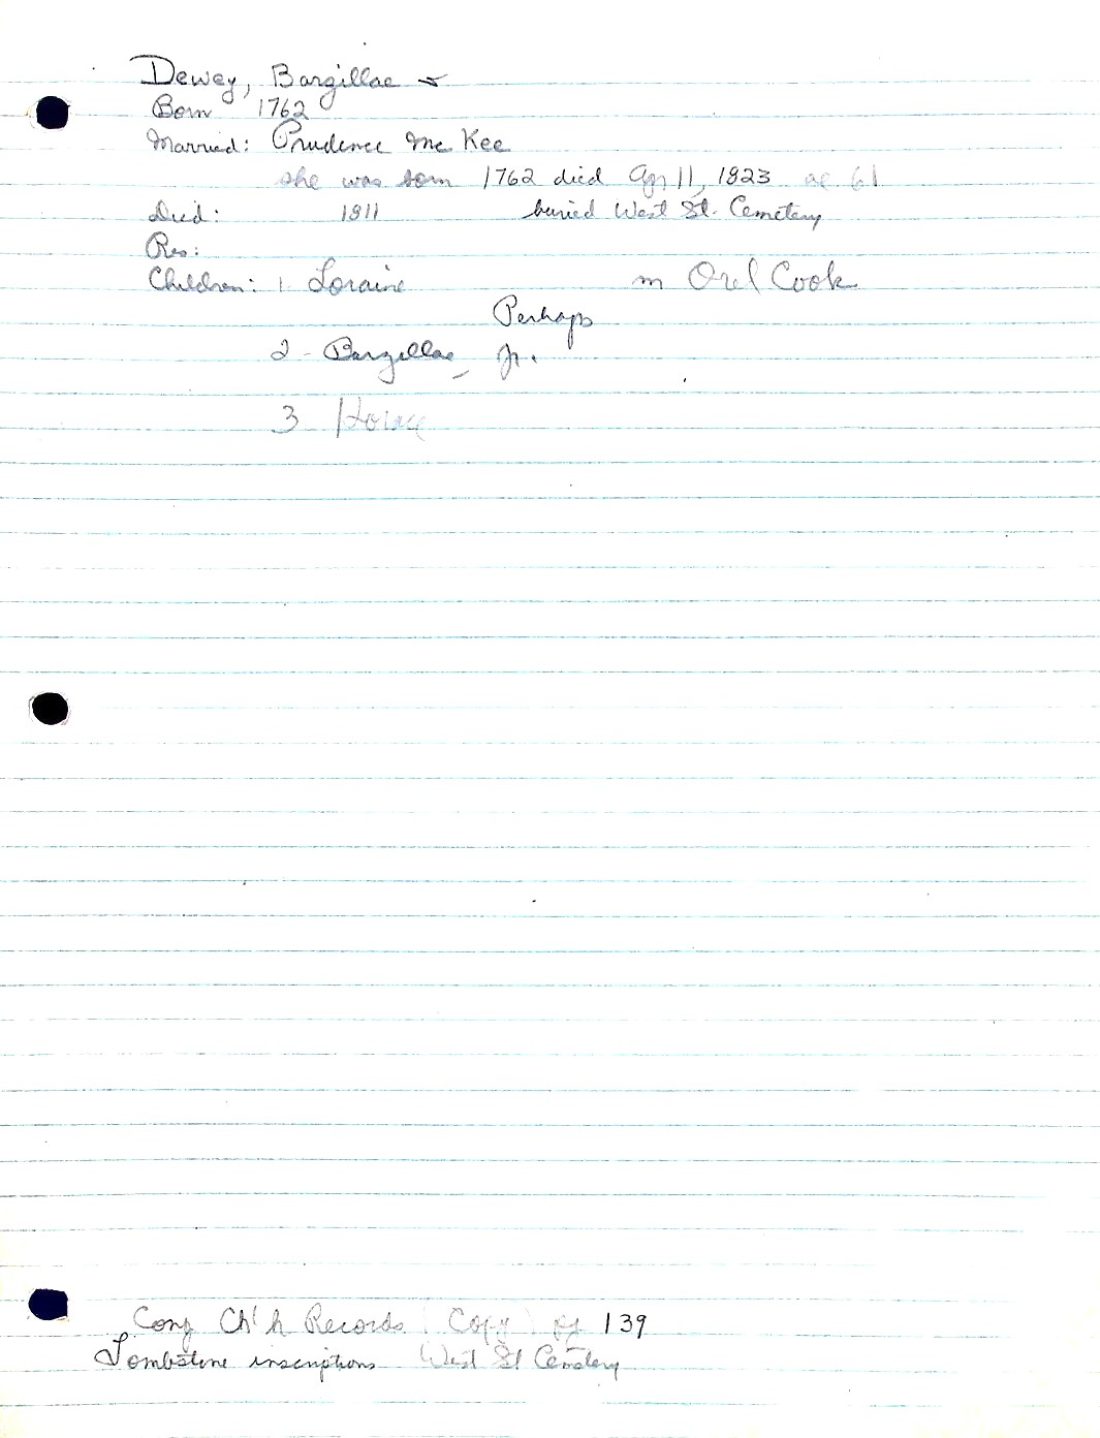 Dewey, Barzillae
Born 1762
Married: Prudence Mc Kee
she was born 1762 died Apr 11, 1823 ae 61
Died: 1811 buried West St. Cemetery
Res:
Children: 1 Loraine m Orel Cook
Perhaps
2 - Barzillae, Jr.
3 Horace
Cong Ch'h Records (Copy) pg 139
Tombstone inscriptions West St Cemetery